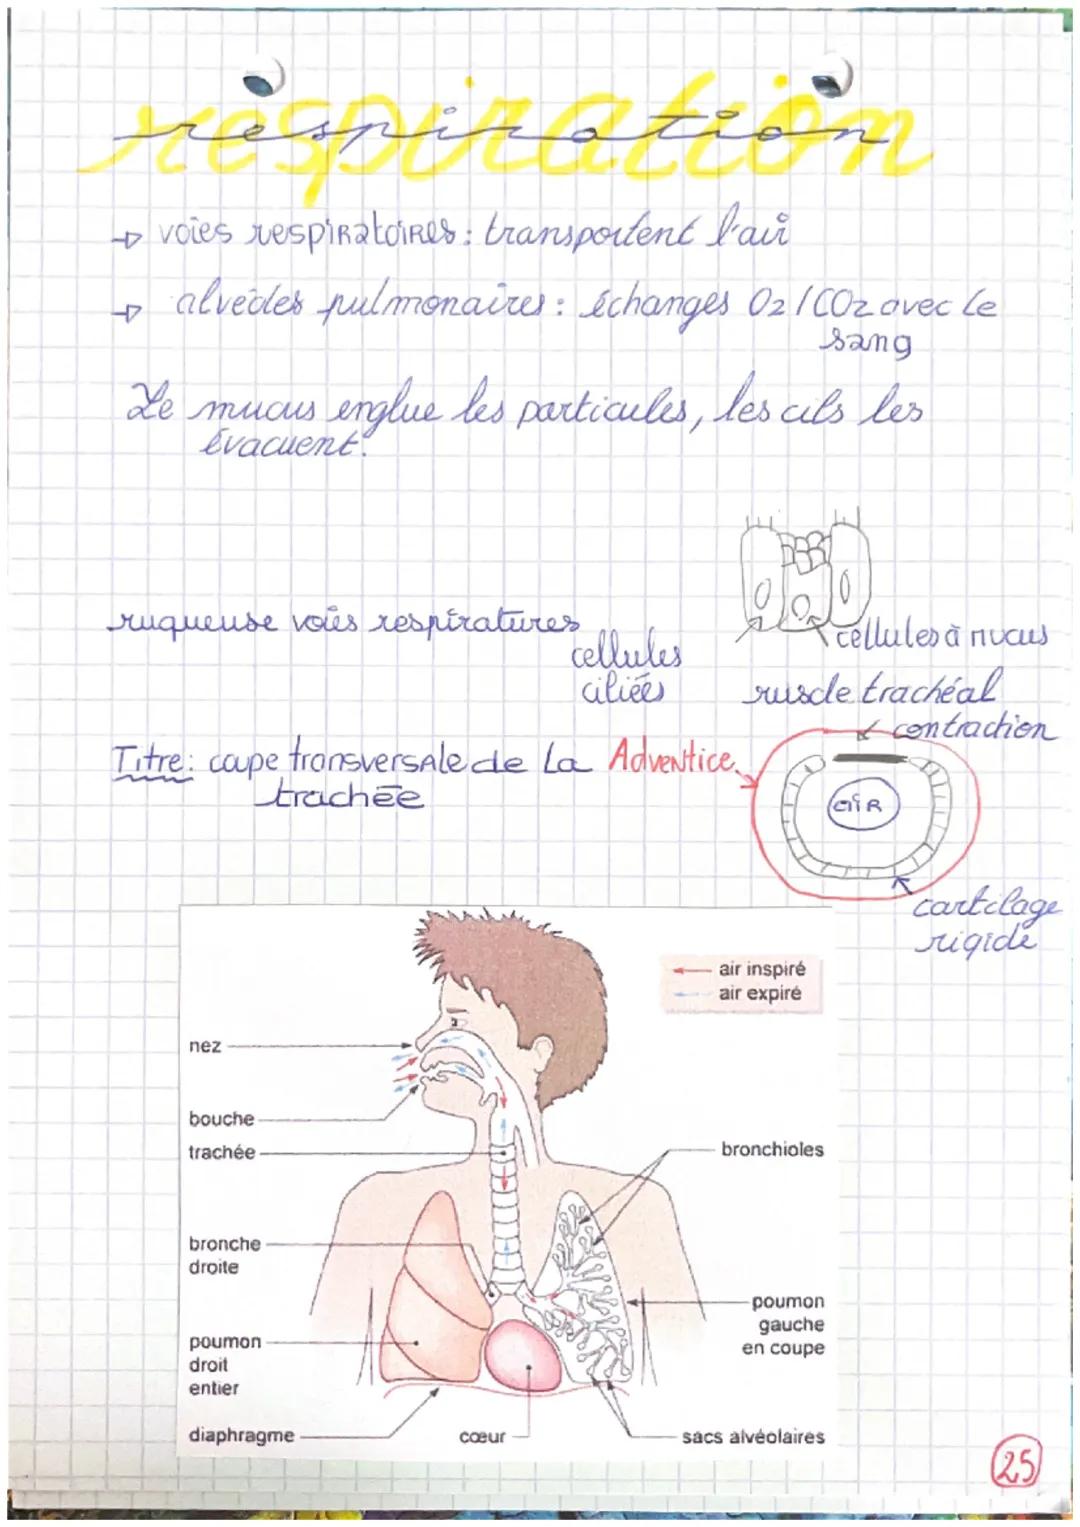 respiration
→ voies respiratoires : transportent l'air
→ alvéoles pulmonaires : échanges O2/CO2 avec le
sang
Le mucus englue les particules, les cils les
évacuent.
muqueuse voies respiratures
cellules
ciliées
cellules à mucus
muscle trachéal
contraction
Titre : coupe transversale de la
trachée
Adventice
AIR
cartilage
rigide
air inspiré
air expiré
nez
bouche
trachée
bronchioles
bronche
droite
poumon
gauche
en coupe
poumon
droit
entier
diaphragme
cœur
sacs alvéolaires
25